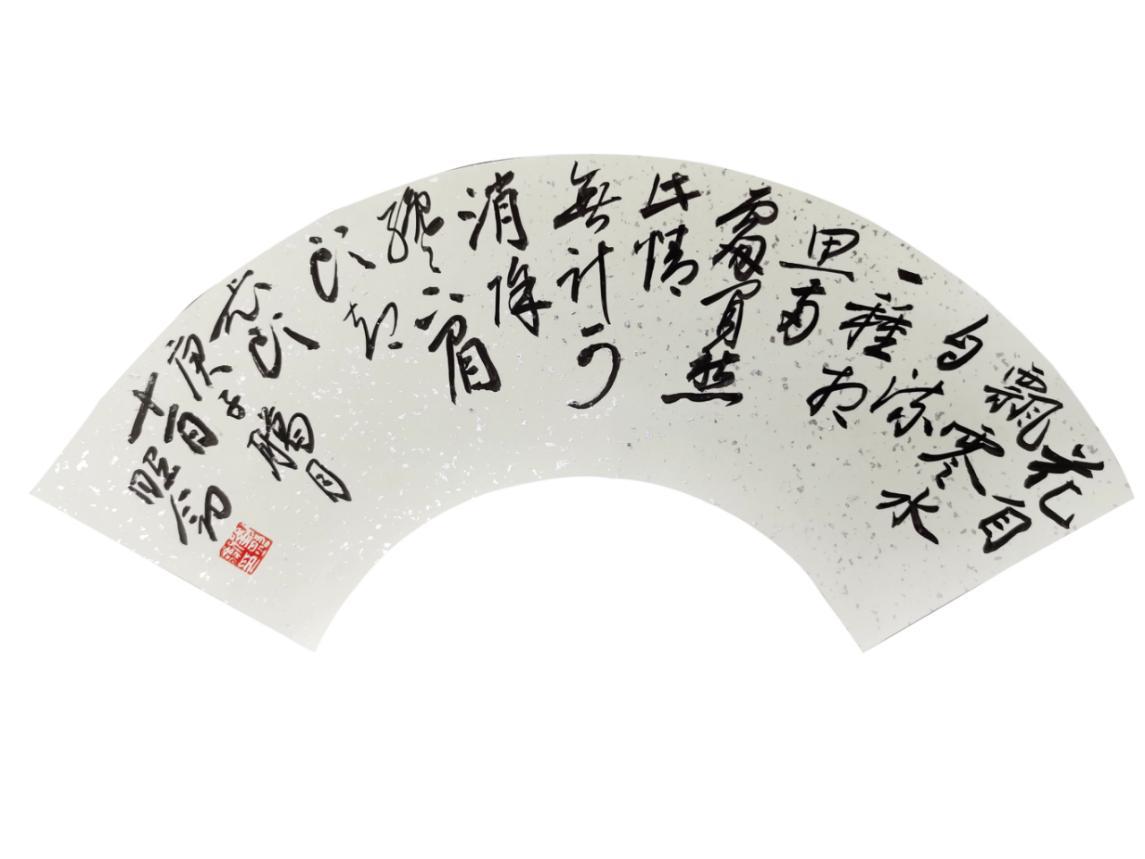 花自
飄零水
自流
一種相
思兩
處閒愁
此情
無計可
消除
纔下眉
頭却
上心頭
庚子臘月